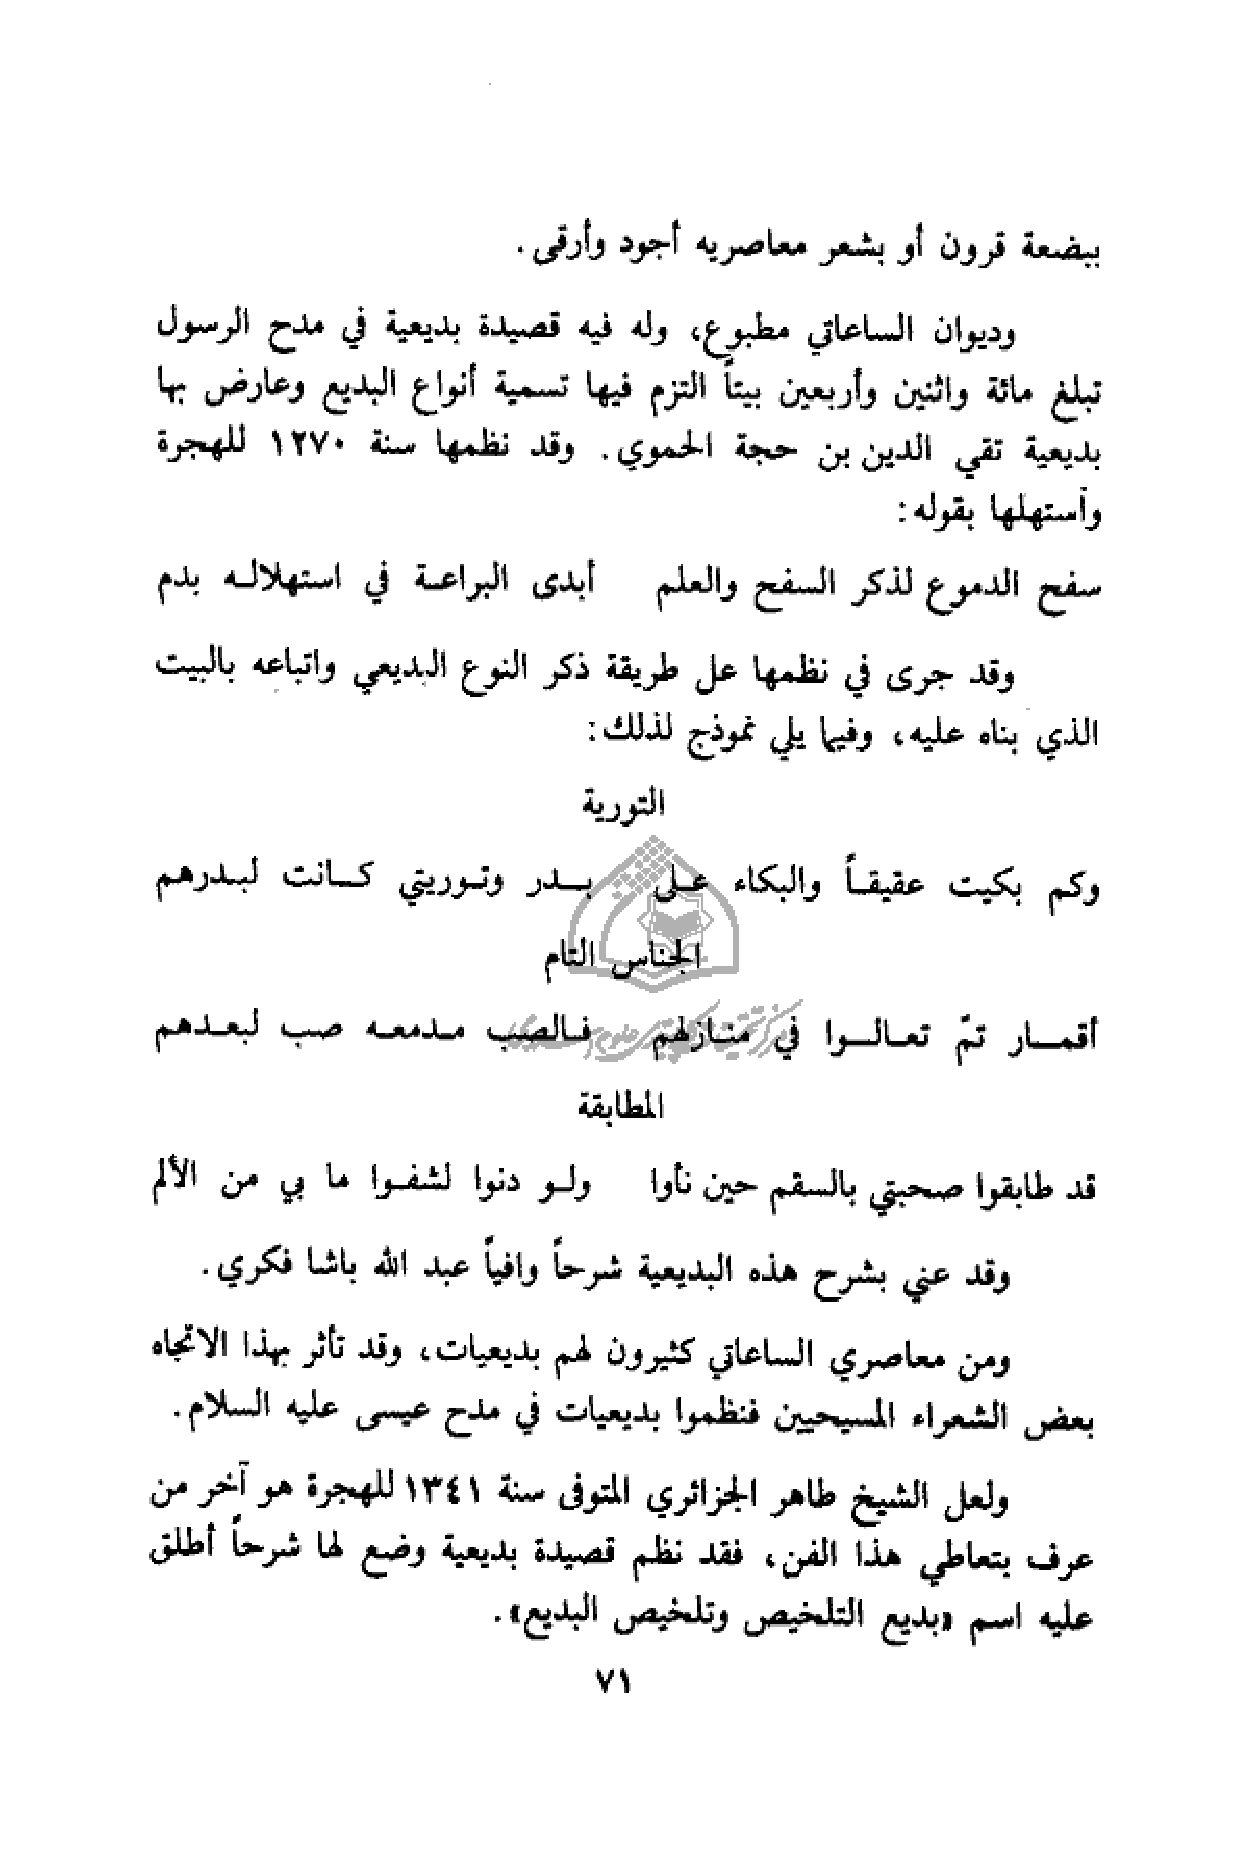 ببضعة قرون أو بشعر معاصريه أجود وأرقى.
وديوان الساعاتي مطبوع، وله فيه قصيدة بديعية في مدح الرسول
تبلغ مائة واثنتين وأربعين بيتاً التزم فيها تسمية أنواع البديع وعارض بها
بديعية تقي الدين بن حجة الحموي. وقد نظمها سنة ١٢٧٠ للهجرة
وآستهلها بقوله:
سفح الدموع لذكر السفح والعلم أبدى البراعة في استهلاله بدم
وقد جرى في نظمها عل طريقة ذكر النوع البديعي واتباعه بالبيت
الذي بناه عليه، وفيما يلي نموذج لذلك:
التورية
وكم بكيت عقيقاً والبكاء على بدر وتوريتي كانت لبدرهم
الجناس التام
أقمار تمّ تعالوا في منازلهم فالصب مدمعه صب لبعدهم
المطابقة
قد طابقوا صحبتي بالسقم حين نأوا ولو دنوا لشفوا ما بي من الألم
وقد عني بشرح هذه البديعية شرحاً وافياً عبد الله باشا فكري.
ومن معاصري الساعاتي كثيرون لهم بديعيات، وقد تأثر بهذا الاتجاه
بعض الشعراء المسيحيين فنظموا بديعيات في مدح عيسى عليه السلام.
ولعل الشيخ طاهر الجزائري المتوفى سنة ١٣٤١ للهجرة هو آخر من
عرف بتعاطي هذا الفن، فقد نظم قصيدة بديعية وضع لها شرحاً أطلق
عليه اسم «بديع التلخيص وتلخيص البديع».
٧١